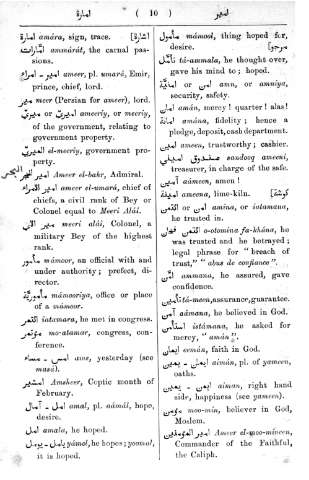 امارة ( 10 ) امير
امارة amára, sign, trace. [اشارة]
امّارات ammárát, the carnal pas-
sions.
امير - امراء ameer, pl. umará, Emir,
prince, chief, lord.
مير meer (Persian for ameer), lord.
ميري or اميري ameeriy, or meeriy,
of the government, relating to
government property.
الميري el-meeriy, government pro-
perty.
امير البحر Ameer el-bahr, Admiral.
امير الامراء ameer el-umará, chief of
chiefs, a civil rank of Bey or
Colonel equal to Meeri Alái.
مير الاي meeri alái, Colonel, a
military Bey of the highest
rank.
مأمور mámoor, an official with and
under authority; prefect, di-
rector.
مأموريّة mámooriya, office or place
of a mámoor.
ائتمر intamara, he met in congress.
مؤتمر mo-atamar, congress, con-
ference.
امس - مساء ams, yesterday (see
masá).
امشير Amsheer, Coptic month of
February.
امل - آمال amal, pl. aámál, hope,
desire.
امل amala, he hoped.
امل - يومل yámal, he hopes; yoomal,
it is hoped.
مأمول mámool, thing hoped for,
desire. [مرجو]
تأمّل tá-ammala, he thought over,
gave his mind to; hoped.
امن or امنية amn, or amniya,
security, safety.
امان amán, mercy! quarter! alas!
امانة amána, fidelity; hence a
pledge, deposit, cash department.
امين ameen, trustworthy; cashier.
صندوق اميني sandooq ameeni,
treasurer, in charge of the safe.
آمين aámeen, amen!
امينة ameena, lime-kiln. [كوشة]
امن or ائتمن amina, or iotamana,
he trusted in.
ائتمن فخان o-otomina fa-khána, he
was trusted and he betrayed;
legal phrase for "breach of
trust," "abus de confiance".
امّن ammana, he assured, gave
confidence.
تأمين tá-meen, assurance, guarantee.
آمن aámana, he believed in God.
استأمن istámana, he asked for
mercy, "amán".
ايمان eemán, faith in God.
ايمان - يمين aimán, pl. of yameen,
oaths.
ايمن - يمين aiman, right hand
side, happiness (see yameen).
مؤمن moo-min, believer in God,
Moslem.
امير المؤمنين Ameer el-moo-mineen,
Commander of the Faithful,
the Caliph.